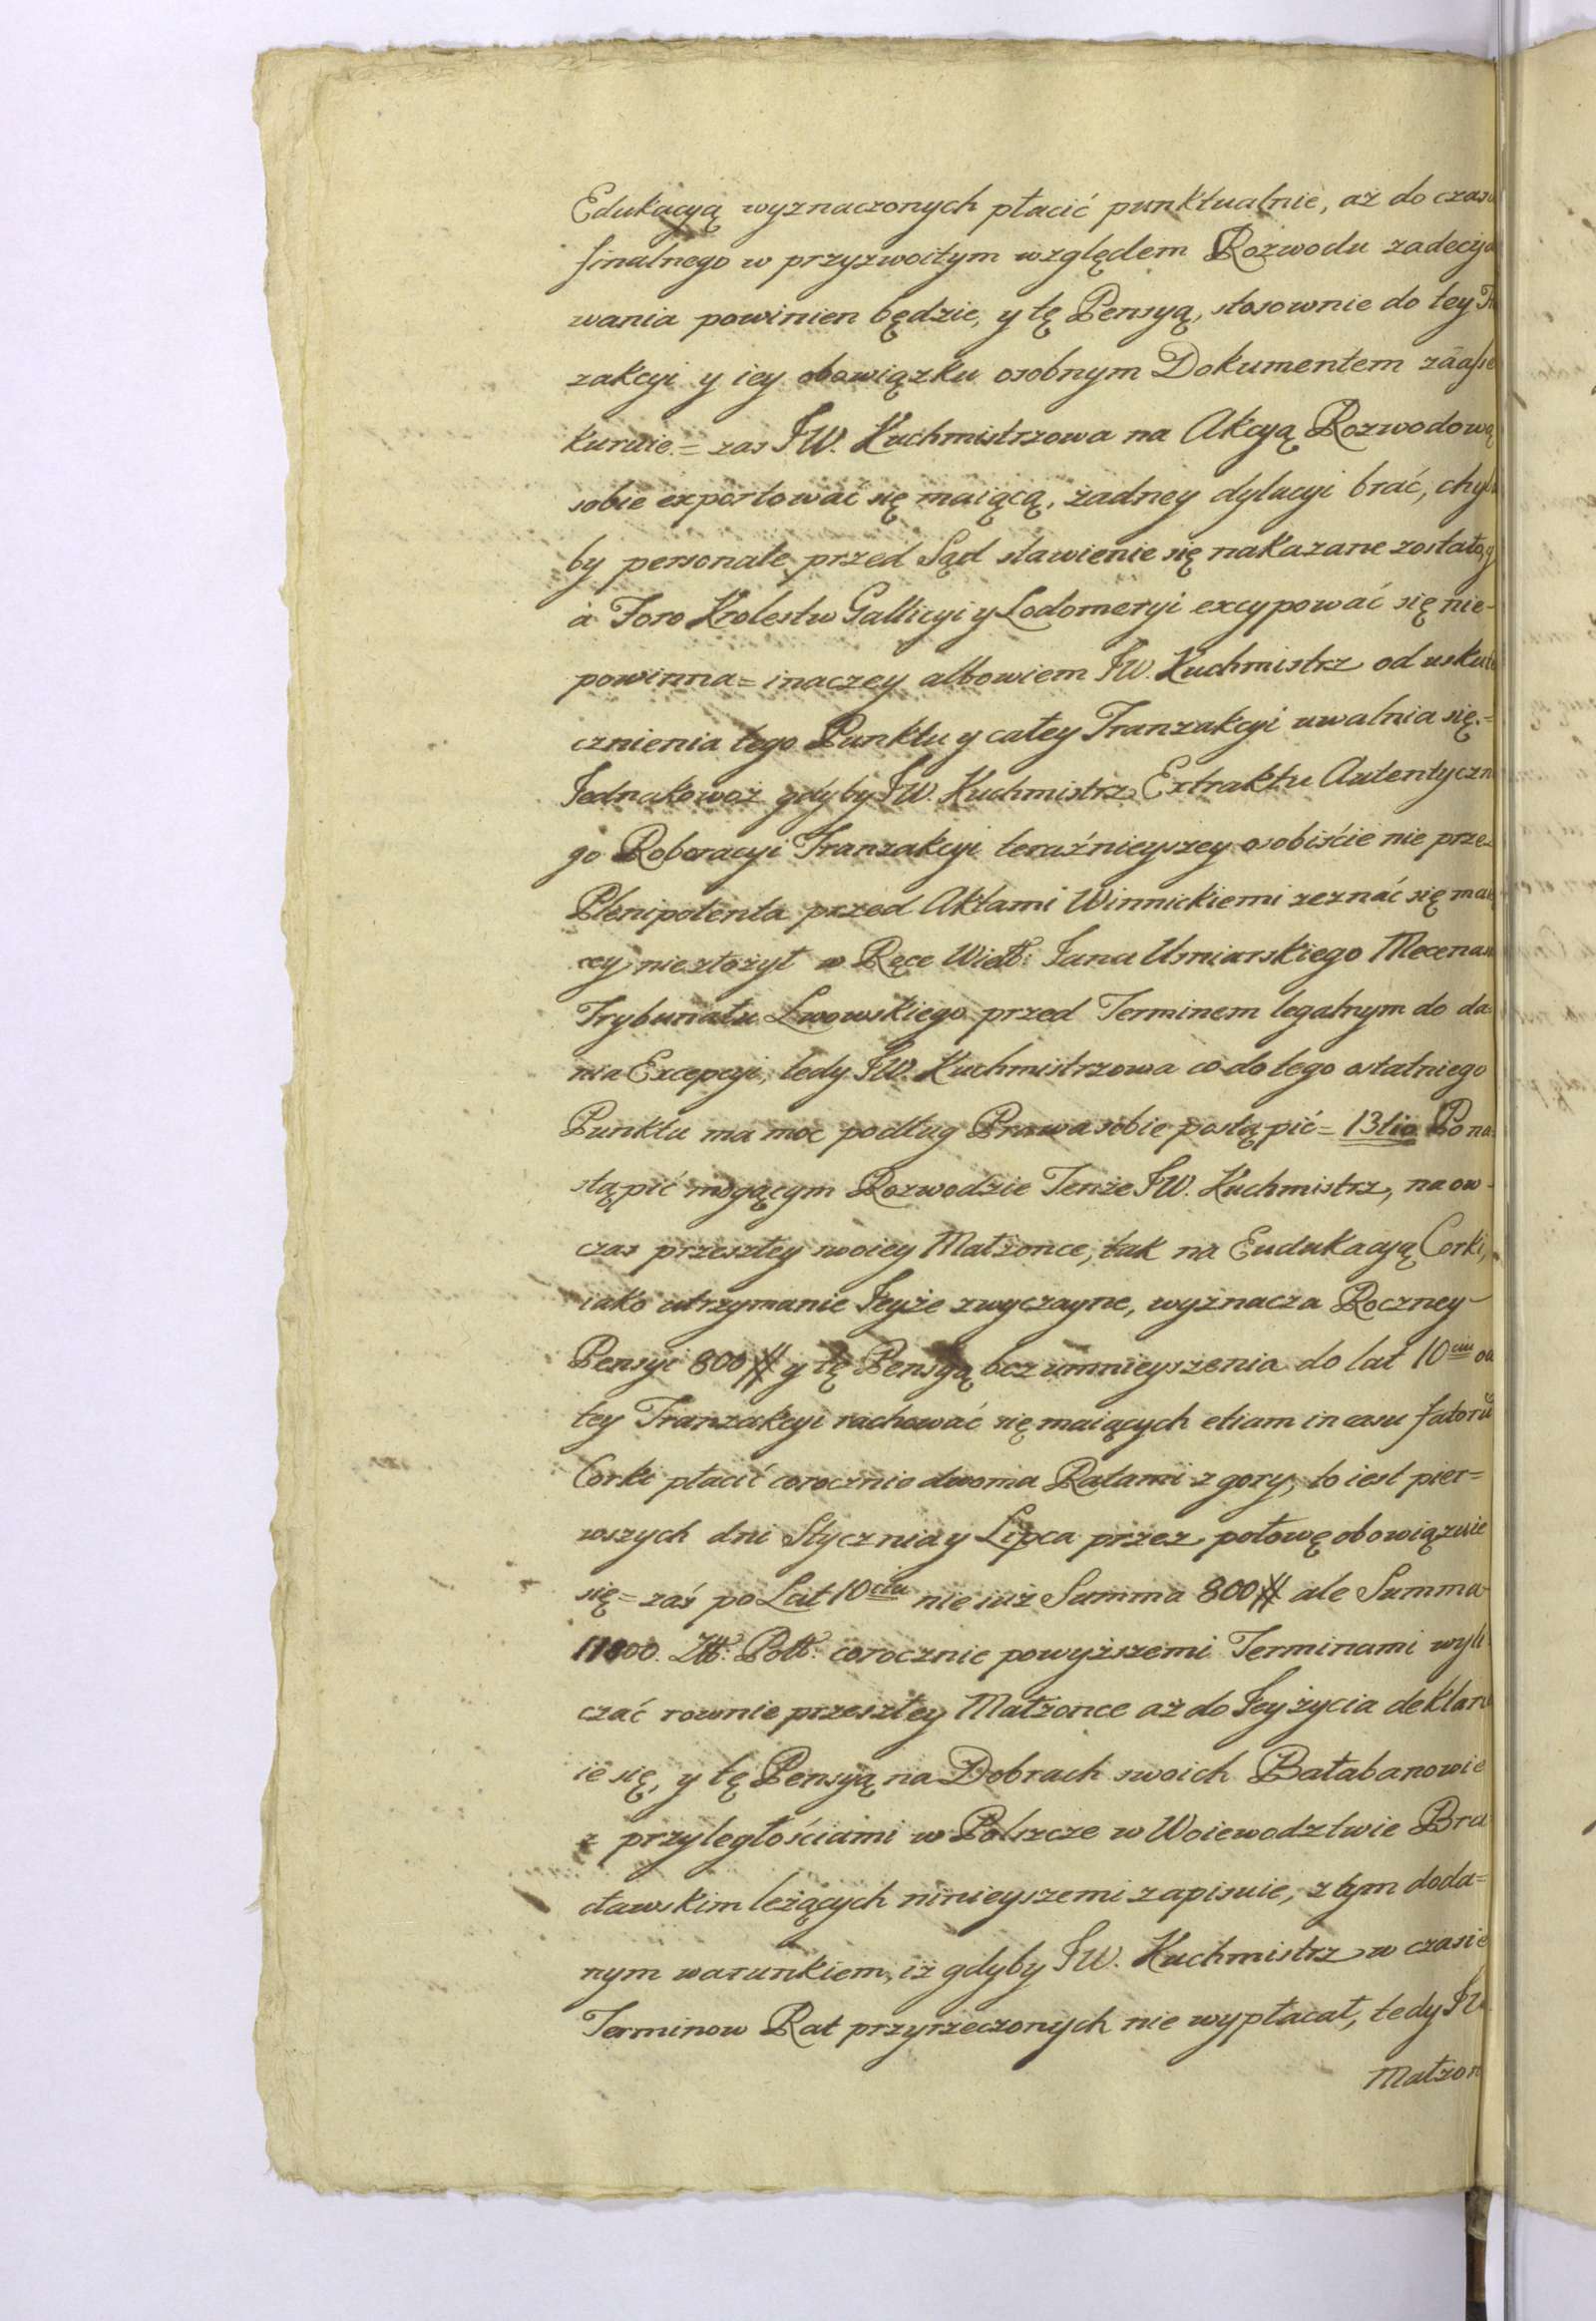 Edukacyą wyznaczonych płacić punktualnie, aż do czasu
finalnego w przyzwoitym względem Rozwodu zadecydo
wania powinien będzie, y tę Pensyą, stosownie do tey
zakcyi y iey obowiązku osobnym Dokumentem zaasse
kuruie.= zas JW. Kuchmistrzowa na Akcyą Rozwodową
sobie exportować się maiącą, żadney dylacyi brać, chyba
by personale przed Sąd stawienie się nakazane zostało, y
à Foro Krolestw Gallicyi y Lodomeryi excypować się nie-
powinna= inaczey albowiem JW. Kuchmistrz od usku
cznienia tego Punktu y całey Tranzakcyi uwalnia się.=
Jednakowoż gdyby JW. Kuchmistrz Extraktu Autentyczn
go Roboracyi Tranzakcyi teraźnieyszey osobiście nie prze
Plenipotenta przed Aktami Winnickiemi zeznać się maią
cey niezłożył w Ręce Wielł: Jana Usniarskiego Mecenasa
Trybunału Lwowskiego przed Terminem legalnym do da
nia Excepcyi, tedy JW. Kuchmistrzowa co do tego ostatniego
Punktu ma moc podług Prawa sobie postąpić= 13tio Po na
stąpić mogącym Rozwodzie Tenże JW. Kuchmistrz, na ow-
czas przeszłey swoiey Małżonce, tak na Eudukacyą Corki,
iako utrzymanie Jeyże zwyczayne, wyznacza Roczney
Pensyi 800 # y tę Pensyą bez umnieyszenia do lat 10ciu od
tey Tranzakcyi rachować się maiących etiam in casu fatorū
Corki płacić corocznie dwoma Ratami z gory, to iest pier=
wszych dni Stycznia y Lipca przez połowę obowiązuie
się= zaś po Lat 10ciu nie iuż Summa 800 # ale Summa
Złł: Poll: corocznie powyższemi Terminami wyli
czać rownie przeszłey Małżonce aż do Jey życia deklaru
ie się, y tę Pensyą na Dobrach swoich Bałabanowie
z przyległościami w Polszcze w Woiewodztwie Bra
cławskim leżących ninieyszemi zapisuie, z tym doda=
nym warunkiem, iż gdyby JW. Kuchmistrz w czasie
Terminow Rat przyrzeczonych nie wypłacał, tedy JW
Małżon